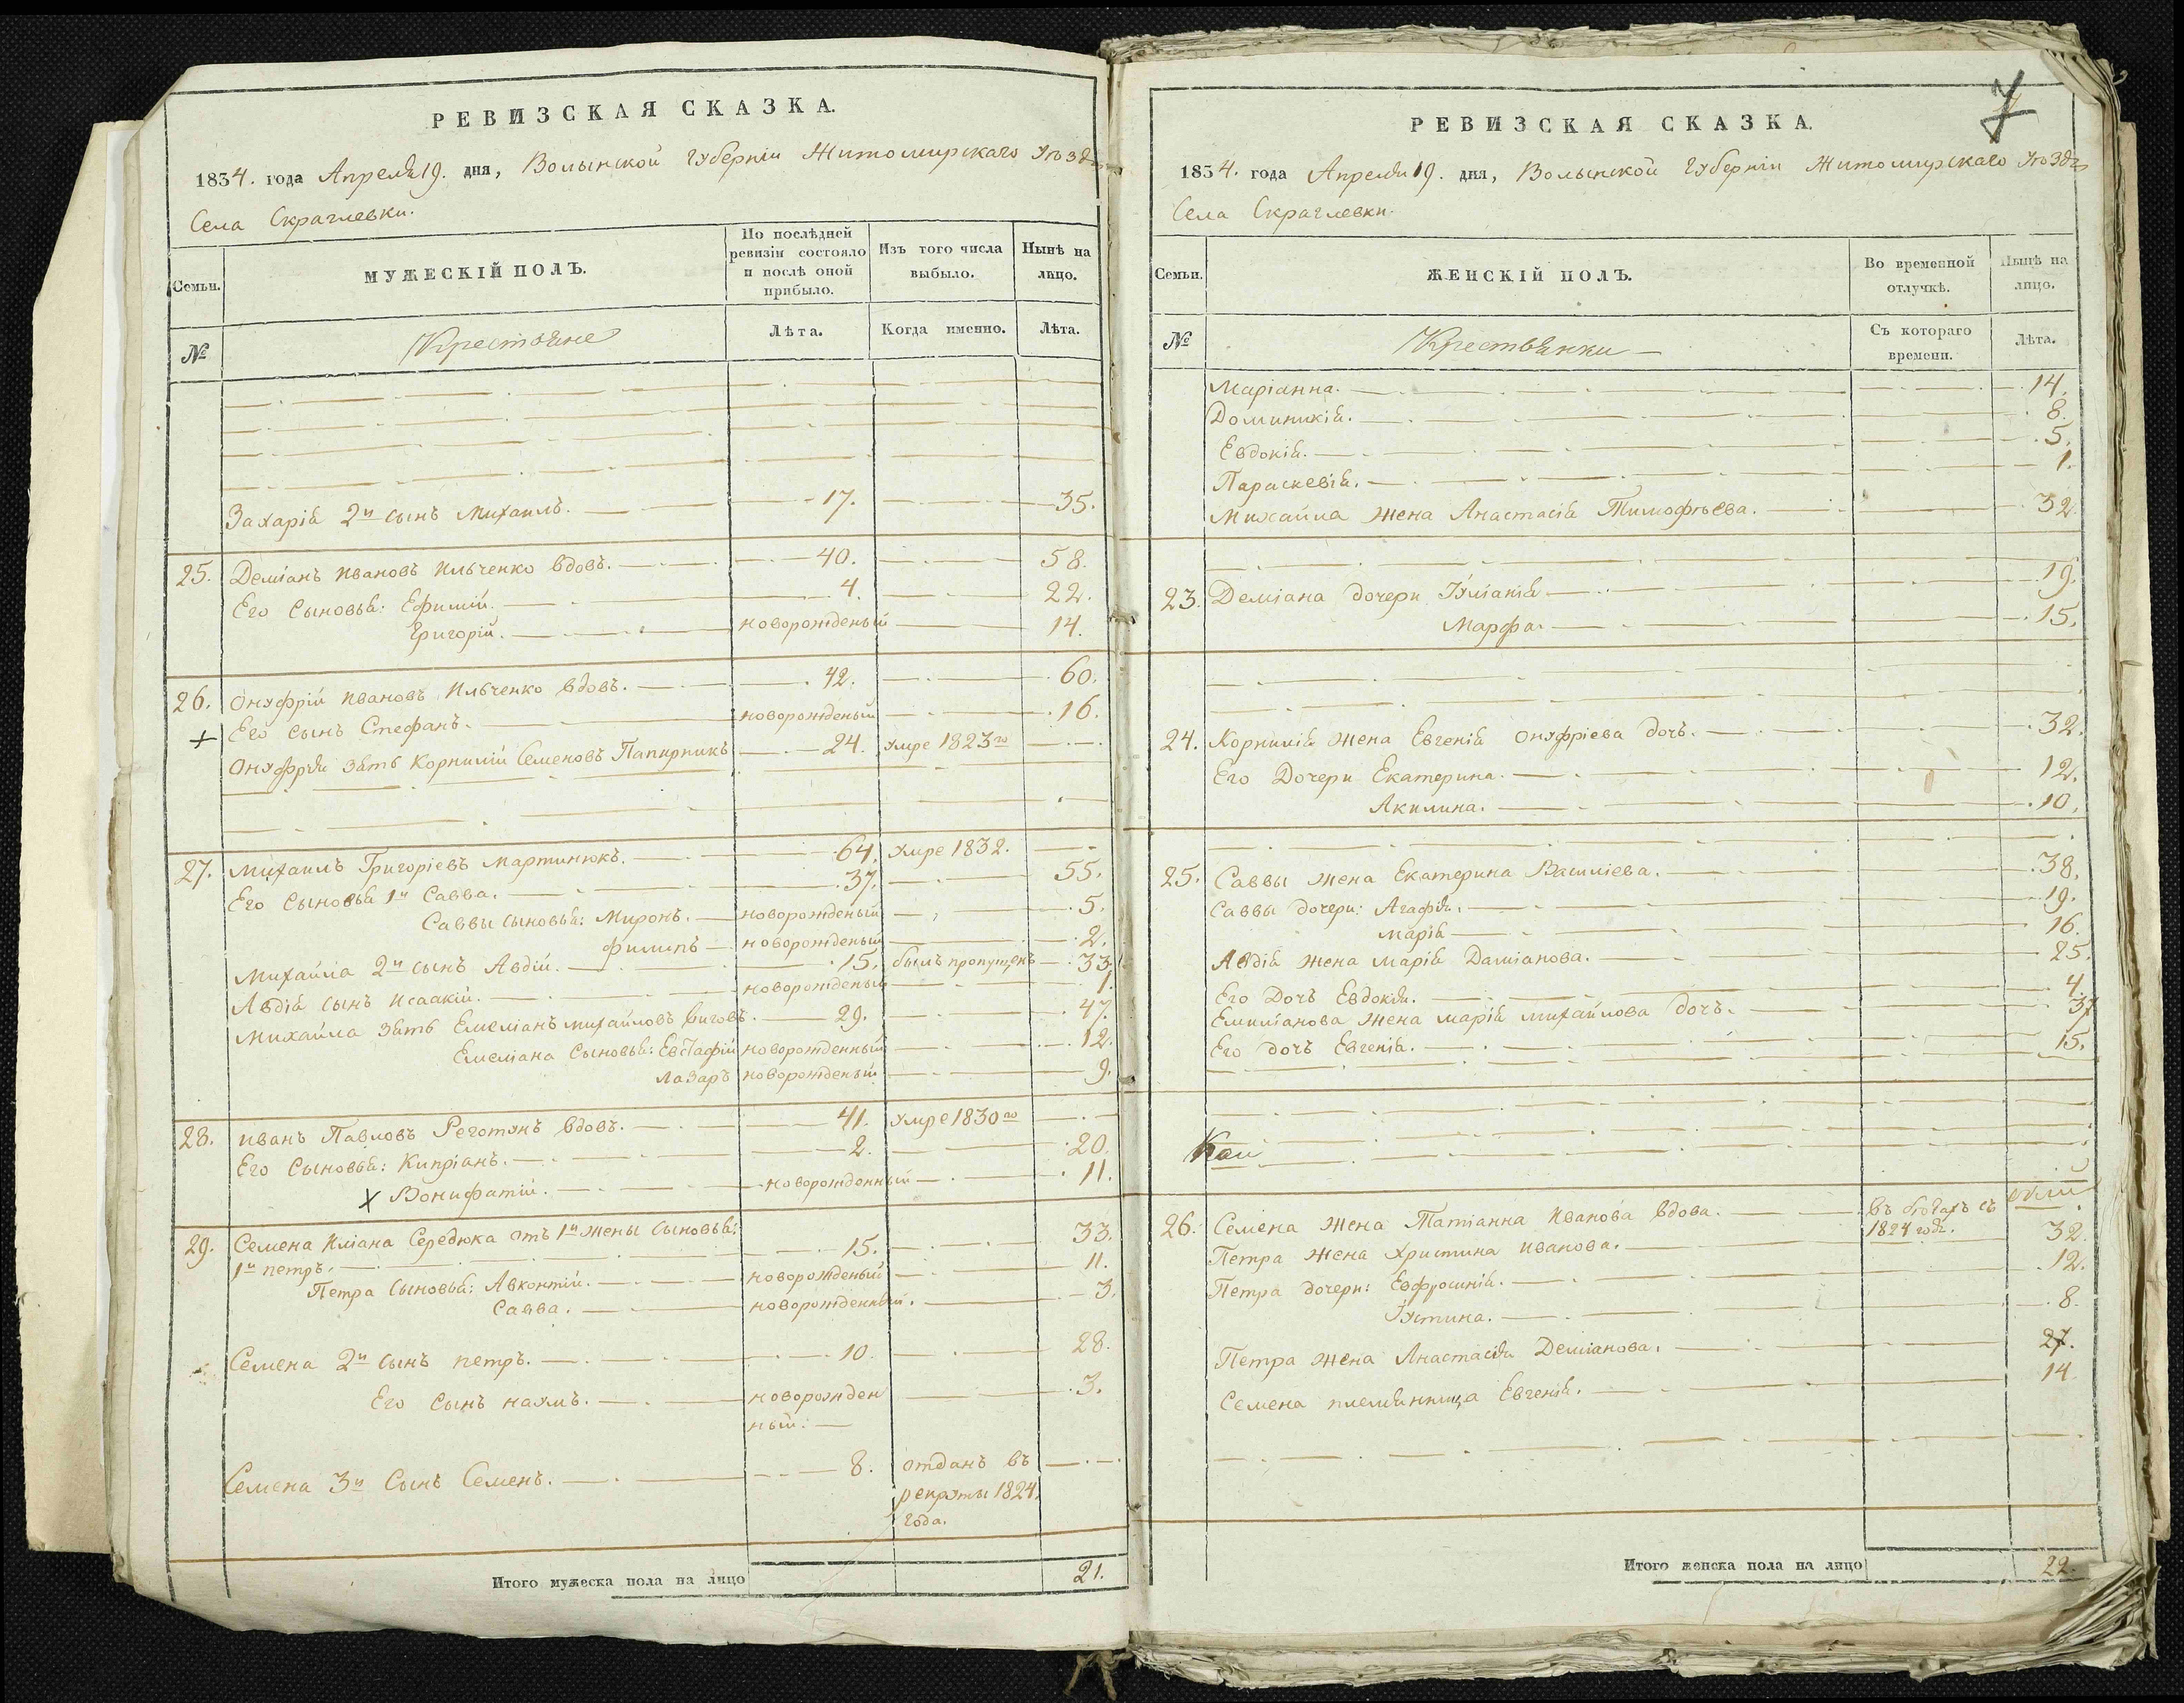 РЕВИЗСКАЯ СКАЗКА.
1834. года Апреля 19. дня, Волынской Губерніи Житомирскаго Уѣзда
Села Скраглевки.
Семьи.
МУЖЕСКІЙ ПОЛЪ.
По послѣдней ревизіи состояло и послѣ оной прибыло.
Изъ того числа выбыло.
Нынѣ на лицо.
№
Крестьяне
Лѣта.
Когда именно.
Лѣта.
Захарія 2й сынъ Михаилъ. 17. 35.
25. Деміанъ Ивановъ Ильченко вдовъ. 40. 58.
Его Сыновья: Ефимій. 4. 22.
Григорій. новорожденый 14.
26. Онуфрій Ивановъ Ильченко вдовъ. 42. 60.
Его сынъ Стефанъ. новорожденый 16.
Онуфрія зять Корнилій Семеновъ Папирникъ 24. умре 1823го
27. Михаилъ Григоріевъ Мартинюкъ. 64. умре 1832.
Его Сыновья 1й Савва. 37. 55.
Саввы сыновья: Миронъ. новорожденый 5.
Филипъ новорожденый 2.
Михайла 2й сынъ Авдій. 15. былъ пропущенъ 33
Авдія сынъ Исаакій. новорожденый 1.
Михайла зять Емеліанъ Михайловъ 29. 47.
Емеліана Сыновья: Евстафій новорожденный 12.
Лазарь новорожденый 9.
28. Иванъ Павловъ вдовъ. 41. умре 1830го
Его Сыновья: Кипріанъ. 2. 20.
х Вонифатій. новорожденный 11.
29. Семена Иліана Середюка отъ 1й жены сыновья:
1й петръ. 15. 33.
Петра Сыновья: новорожденый 11.
Савва. новорожденный. 3.
Семена 2й сынъ петръ. 10. 28.
Его Сынъ наумъ. новорожден 3.
ный.
Семена 3й Сынъ Семенъ. 8. отданъ въ
рекруты 1824.
года.
Итого мужеска пола на лицо 21.
7
РЕВИЗСКАЯ СКАЗКА.
1834. года Апреля 19. дня, Волынской Губерніи Житомирскаго Уѣзда
Села Скраглевки.
Семьи.
ЖЕНСКІЙ ПОЛЪ.
Во временной отлучкѣ.
Нынѣ на лицо.
№
Крестьянки
Съ котораго времени.
Лѣта.
Маріанна. 14.
Доминикія. 8.
Евдокія. 5.
Параскевія. 1.
Михайла жена Анастасія Тимофѣева. 32.
23. Деміана дочери Іуліанія 19.
Марфа. 15.
24. Корнилія жена Евгенія Онуфріева дочь. 32.
Его Дочери Екатерина. 12.
Акилина. 10.
25. Саввы жена Екатерина Василіева. 38.
Саввы дочери: Агафія. 19.
Марія 16.
Авдія жена Марія Даміанова. 25.
Его Дочь Евдокія. 4.
Емиліанова жена марія михайлова дочь. 37
Его дочь Евгенія. 15.
26. Семена жена Татіанна Иванова вдова. въ бѣгахъ съ
1824 года.
Петра жена Христина Иванова. 32.
Петра дочери: Евфросинія. 12.
Іустина. 8.
Петра жена Анастасія Деміанова. 27.
Семена племянница Евгенія. 14.
Итого женска пола на лицо 22.